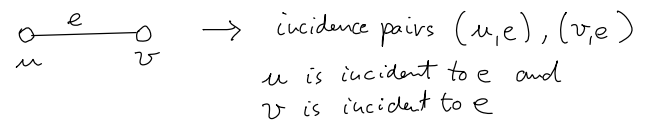 e
u v
→ incidence pairs (u,e), (v,e)
u is incident to e and
v is incident to e